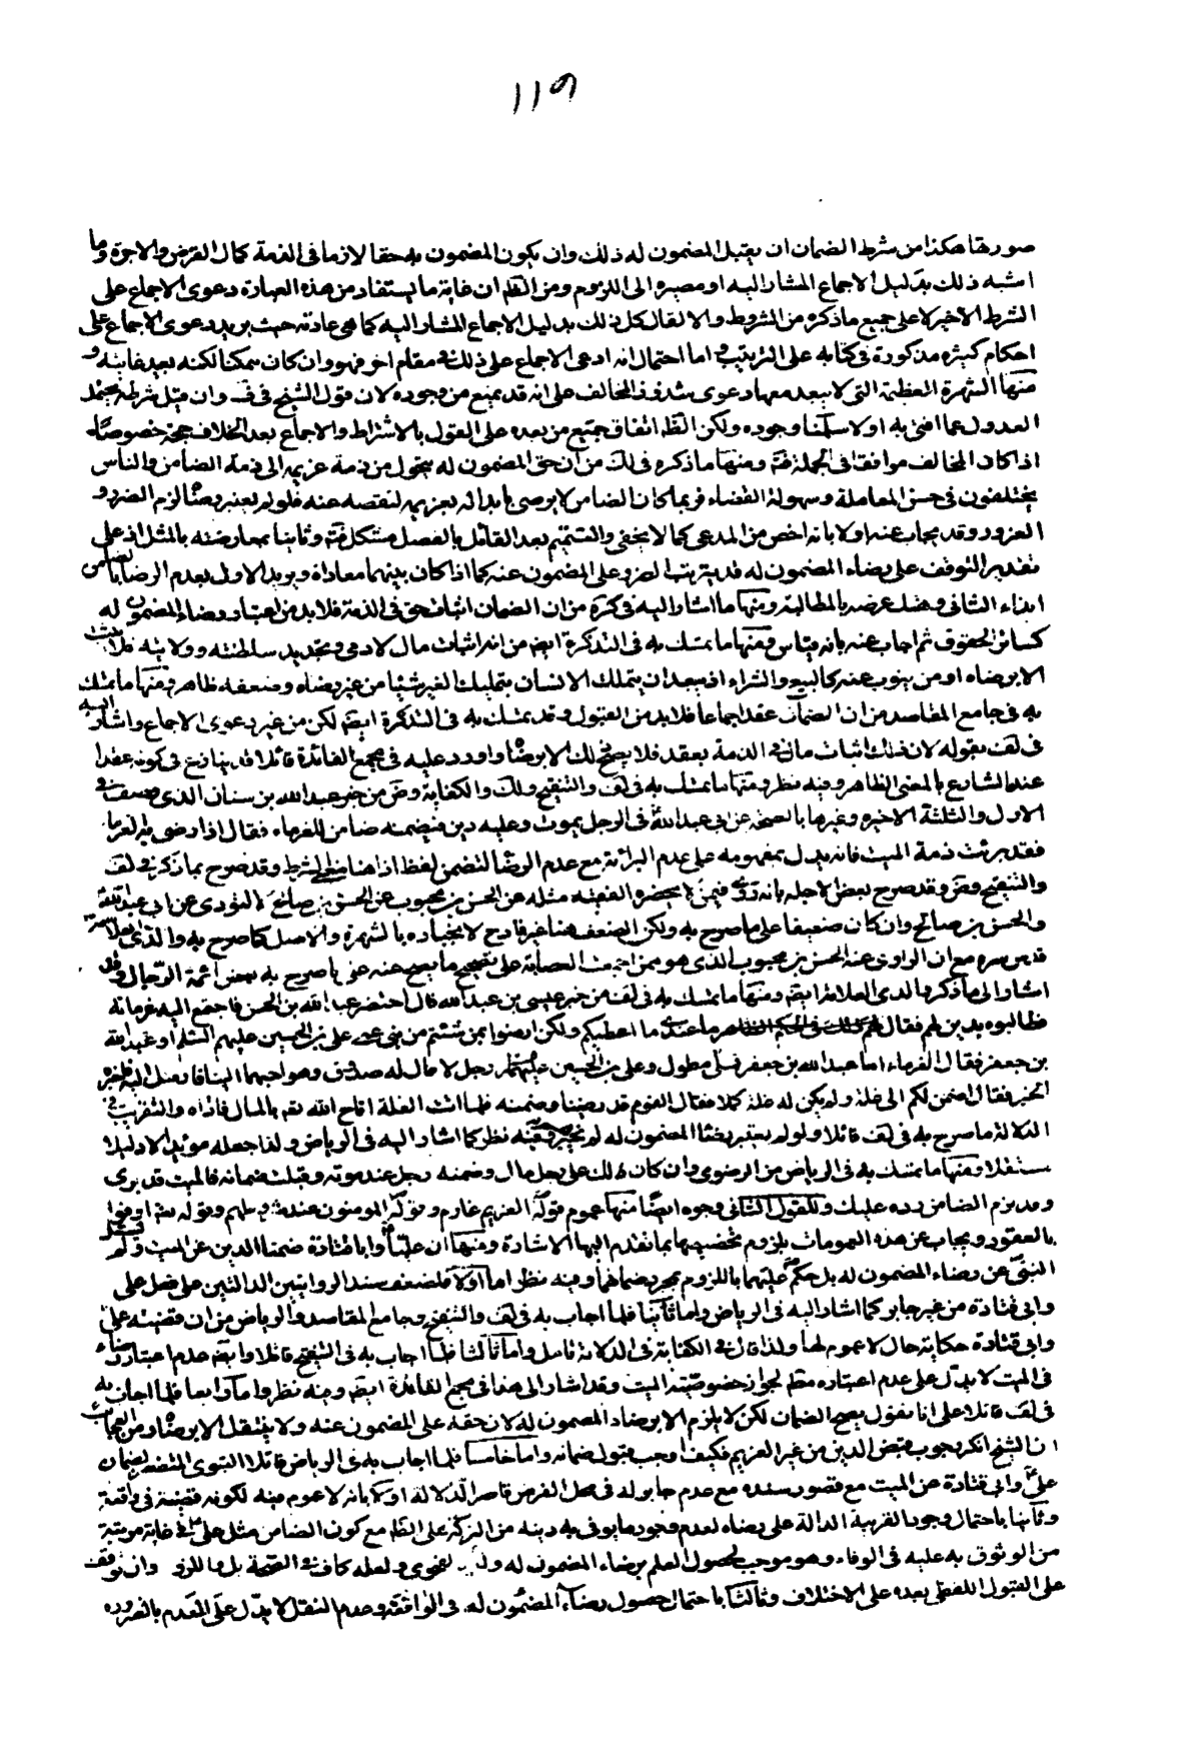 ١١٩
صورتها هكذا من شرط الضمان ان يقبل المضمون له ذلك وان يكون المضمون به حقا لازما فى الذمة كمال القرض والاجرة وما
اشبه ذلك بدليل الاجماع المشار اليه او مصيره الى اللزوم ومن الظ ان غاية ما يستفاد من هذه العبارة دعوى الاجماع على
الشرط الاخير لا على جميع ما ذكره من الشروط والا لقال كل ذلك بدليل الاجماع المشار اليه كما هى عادته حيث يريد دعوى الاجماع على
احكام كثيره مذكورة فى كتابه على الترتيب واما احتمال انه ادعى الاجماع على ذلك فى مقام اخر فهو وان كان ممكنا لكنه بعيد غايته و
منها الشهرة العظيمة التى لا يبعد معها دعوى شذوذ المخالف على انه قد يمنع من وجوده لان قول الشيخ فى ف وان قيل شرطه يحتمل
العدول عما افتى به اولا سلمنا وجوده ولكن الظ اتفاق جميع من بعده على القول بالاشتراط والاجماع بعد الخلاف حجة خصوصا
اذا كان المخالف موافقا فى الجملة فت ومنها ما ذكره فى لك من ان حق المضمون له يتحول من ذمة غريمه الى ذمة الضامن والناس
يختلفون فى حسن المعاملة وسهولة القضاء فربما كان الضامن لا يرضى بابداله بغريمه لنقصه عنه فلو لم يعتبر رضاه لزم الضرر و
الغرور وقد يجاب عنه اولا بانه اخص من المدعى كما لا يخفى والتتميم بعد القائل بالفصل مشكل فت وثانيا بمعارضته بالمثل اذ على
تقدير التوقف على رضاء المضمون له قد يترتب الضرر على المضمون عنه كما اذا كان بينهما معاداة ويريد الاول بعدم الرضا بالضامن
ايذاء الثانى وهتك عرضه بالمطالبة ومنها ما اشار اليه فى كره من ان الضمان اثبات حق فى الذمة فلا بد من اعتبار رضاء المضمون له
كسائر الحقوق ثم اجاب عنه بانه قياس ومنها ما تمسك به فى التذكرة ايض من انه اثبات مال لادمى وتجديد سلطنته وولايته فلا يثبت
الا برضاه او من ينوب عنه كالبيع والشراء اذ يبعد ان يتملك الانسان بتمليك الغير شيئا من غير رضاه وضعفه ظاهر ومنها ما تمسك
به فى جامع المقاصد من ان الضمان عقد اجماعا فلا بد من القبول وقد تمسك به فى التذكرة ايض لكن من غير دعوى الاجماع واشار اليه
فى لف بقوله لان ذلك اثبات مال فى الذمة بعقد فلا يصح ذلك الا برضاه واورد عليه فى مجمع الفائدة قائلا قد ينازع فى كونه عقدا
عند الشارع بالمعنى الظاهر وفيه نظر ومنها ما تمسك به فى لف والتنقيح ولك والكفاية وض من خبر عبد الله بن سنان الذى وصف فى
الاول والثلثة الاخيره وغيرها بالصحة عن ابى عبد الله فى الرجل يموت وعليه دين فيضمنه ضامن للغرماء فقال اذا رضى به الغرماء
فقد برئت ذمة الميت فانه يدل بمفهومه على عدم البرائة مع عدم الرضا لتضمن لفظ اذا هنا معنى الشرط وقد صرح بما ذكر فى لف
والتنقيح وض وقد صرح بعض الاجله بانه روى فيمن لا يحضره الفقيه مثله عن الحسن بن محبوب عن الحسن بن صالح الثورى عن ابى عبد الله
والحسن بن صالح وان كان ضعيفا على ما صرح به ولكن الضعف هنا غير قادح لانجباره بالشهرة والاصل كما صرح به والدى العلامة
قدس سره مع ان الراوى عنه الحسن بن محبوب الذى هو ممن اجمعت العصابة على تصحيح ما يصح عنه على ما صرح به بعض ائمة الرجال وقد
اشار الى ما ذكره والدى العلامة ايض ومنها ما تمسك به فى لف من خبر عيسى بن عبد الله قال احتضر عبد الله بن الحسن فاجتمع اليه غرمائه
فطالبوه بدين لهم فقال ما عندى ما اعطيكم ولكن ارضوا بمن شئتم من بنى عمى على بن الحسين عليهم السلم او عبد الله
بن جعفر فقال الغرماء اما عبد الله بن جعفر فملى مطول وعلى بن الحسين رجل لا مال له صدوق وهو احبهما الينا فارسل اليه فاخبره
الخبر فقال اضمن لكم الى غلة ولم يكن له غلة كملا فقال القوم قد رضينا وضمنه فلما اتت الغلة اتاح الله تع بالمال فاداه والتقريب فى
الدلالة ما صرح به فى لف قائلا ولو لم يعتبر رضا المضمون له لم وفيه نظر كما اشار اليه فى الرياض ولذا جعله مويدا لا دليلا
مستقلا ومنها ما تمسك به فى الرياض من الرضوى وان كان لك على رجل مال وضمنه رجل عند موته وقبلت ضمانه فالميت قد برى
وقد لزم الضامن رده عليك وللقول الثانى وجوه ايضا منها عموم قوله الغريم غارم وقوله المومنون عند شروطهم وقوله تع اوفوا
بالعقود ويجاب عن هذه العمومات بلزوم تخصيصها بما تقدم اليها الاشارة ومنها ان عليا وابا قتادة ضمنا الدين عن الميت ولم يسئل
النبى عن رضاء المضمون له بل حكم عليهما باللزوم بمجرد ضمانهما وفيه نظر اما اولا فلضعف سند الروايتين الدالتين على فعل على
وابى قتادة من غير جابر كما اشار اليه فى الرياض واما ثانيا فلما اجاب به فى لف والتنقيح وجامع المقاصد والرياض من ان قضيته على
وابى قتادة حكاية حال لا عموم لها ولذا قال فى الكفاية فى الدلالة تامل واما ثالثا فلما اجاب به فى التنقيح قائلا وايض عدم اعتبار رضاه
فى الميت لا يدل على عدم اعتباره مط لجواز خصوصية الميت وقد اشار الى هذا فى مجمع الفائدة ايض وفيه نظر واما رابعا فلما اجاب به
فى لف قائلا على انا نقول يصح الضمان لكن لا يلزم الا برضاء المضمون له لان حقه على المضمون عنه ولا ينتقل الا برضاه ومن العجايب
ان الشيخ انكر وجوب قبض الدين من غير الغريم فكيف اوجب قبول ضمانه واما خامسا فلما اجاب به فى الرياض قائلا النبوى المتضمن لضمان
على وابى قتادة عن الميت مع قصور سنده مع عدم جابر له فى محل الفرض قاصر الدلالة اولا بانه لا عموم فيه لكونه قضية فى واقعة
وثانيا باحتمال وجود القرينة الدالة على رضاه لعدم وجود ما يوفى به دينه من التركة على الظ مع كون الضامن مثل على فى غاية مرتبة
من الوثوق به عليه فى الوفاء وهو موجب لحصول العلم برضاء المضمون له ولعله كاف فى الصحة بل واللزوم وان توقف
على القبول اللفظى بعده على الاختلاف وثالثا باحتمال حصول رضاء المضمون له فى الواقعة وعدم النقل لا يدل على العدم بالضروره